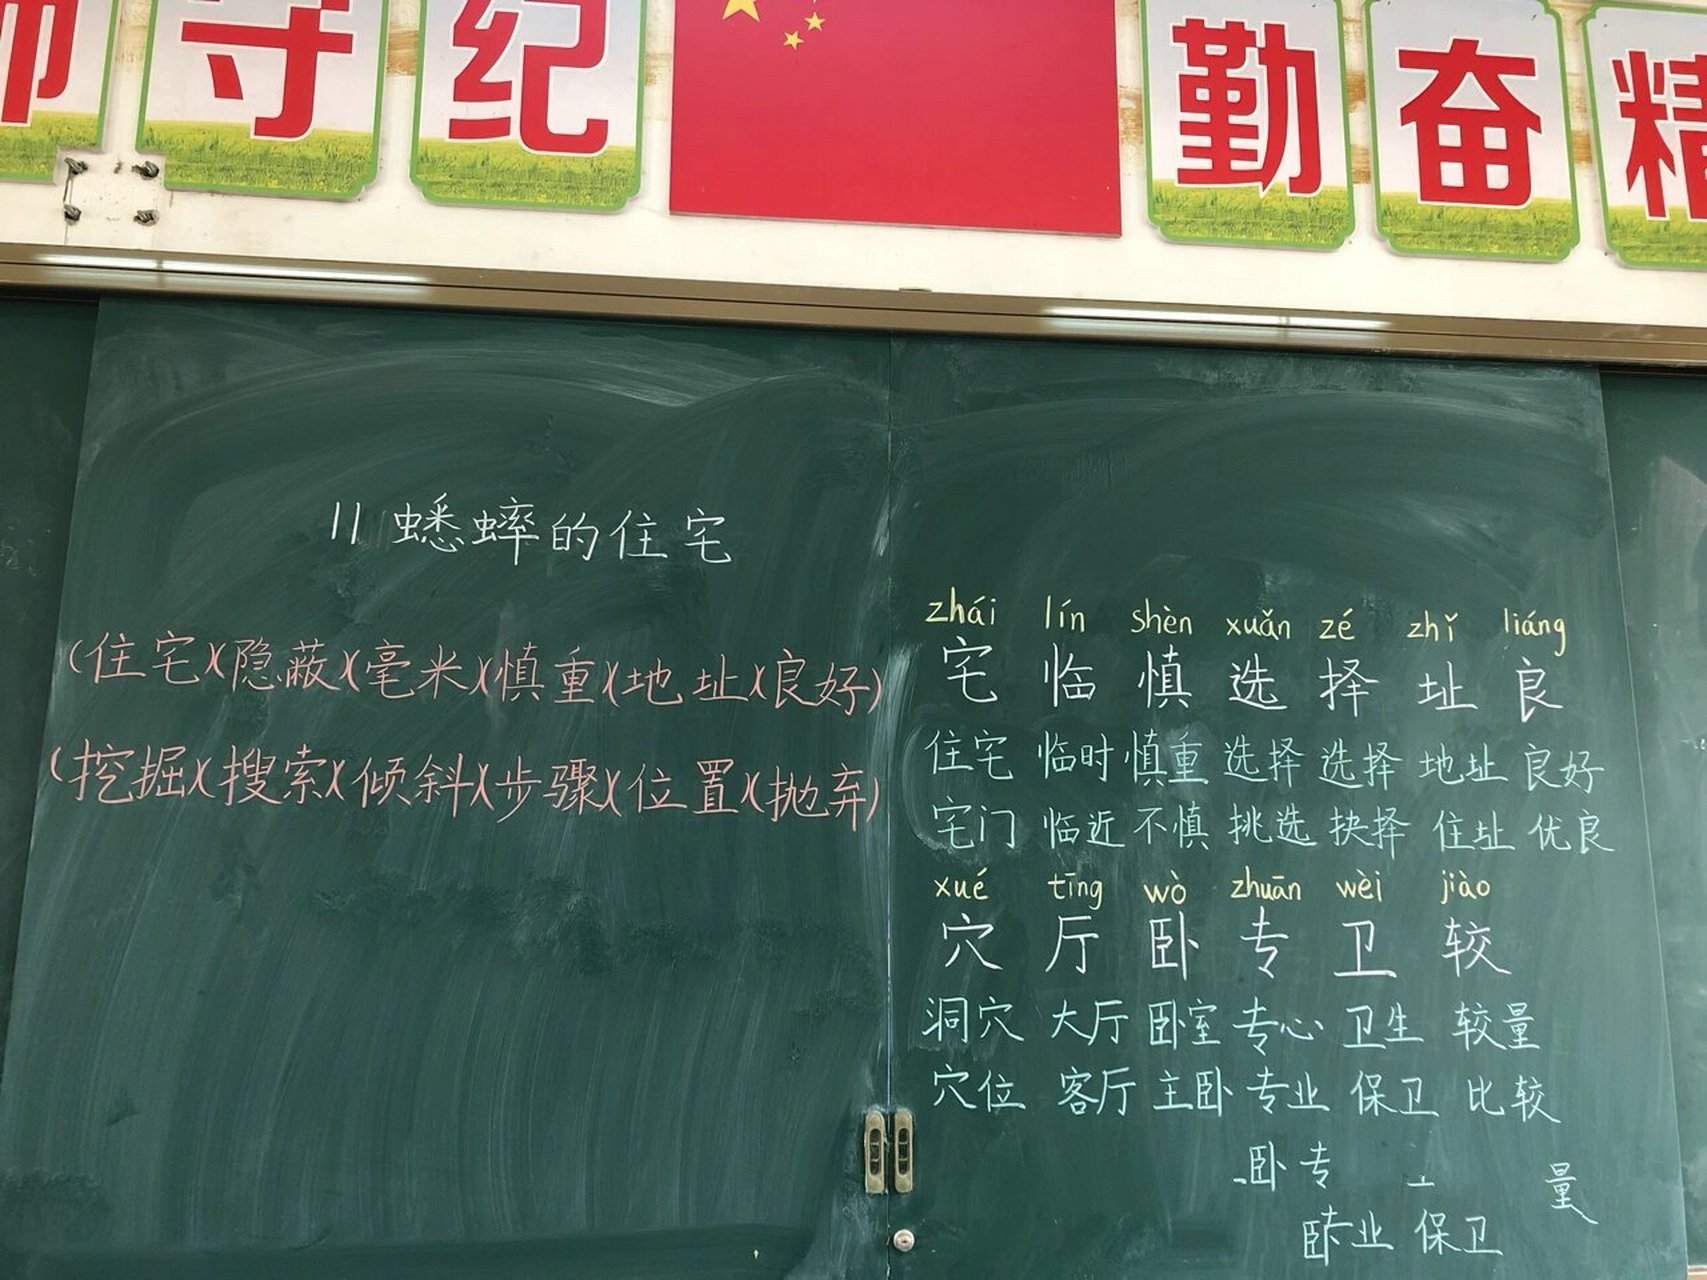 守纪
勤奋精
11 蟋蟀的住宅
(住宅)(隐蔽)(毫米)(慎重)(地址)(良好)
(挖掘)(搜索)(倾斜)(步骤)(位置)(抛弃)
zhái lín shèn xuǎn zé zhǐ liáng
宅 临 慎 选 择 址 良
住宅 临时 慎重 选择 选择 地址 良好
宅门 临近 不慎 挑选 抉择 住址 优良
xué tīng wò zhuān wèi jiào
穴 厅 卧 专 卫 较
洞穴 大厅 卧室 专心 卫生 较量
穴位 客厅 主卧 专业 保卫 比较
卧 专 量
业 保卫